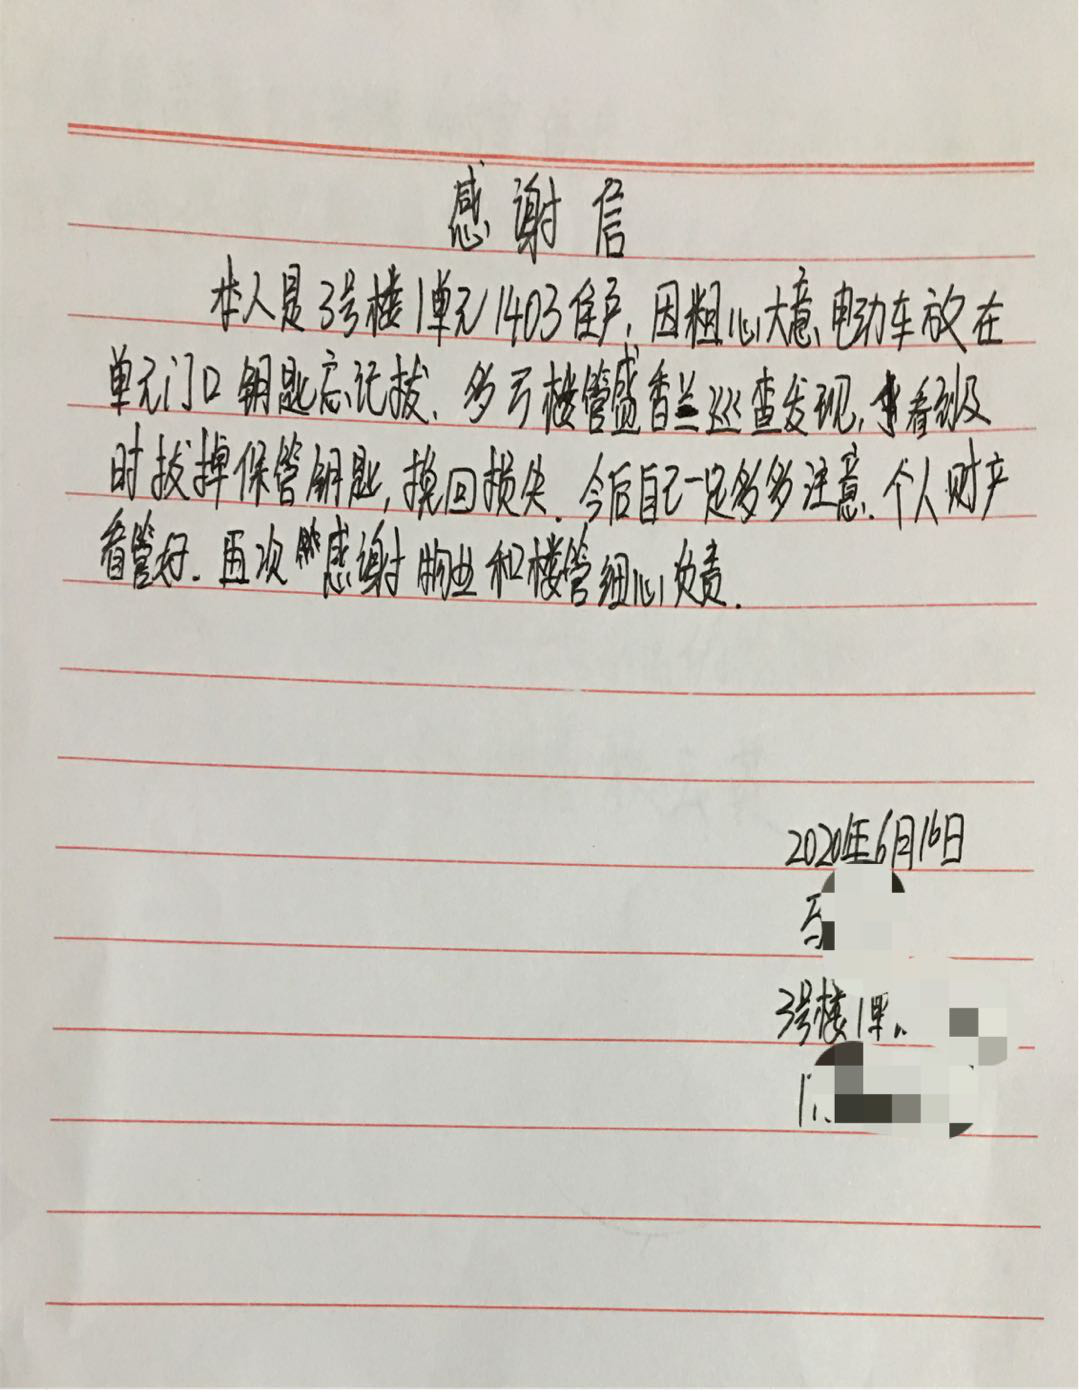 感谢信
本人是3号楼1单元1403住户,因粗心大意、电动车放在
单元门口钥匙忘记拔.多亏楼管盛香兰巡查发现,看到及
时拔掉保管钥匙,挽回损失.今后自己一定多多注意.个人财产
看管好.再次感谢物业和楼管细心负责.
2020年6月16日
3号楼1单